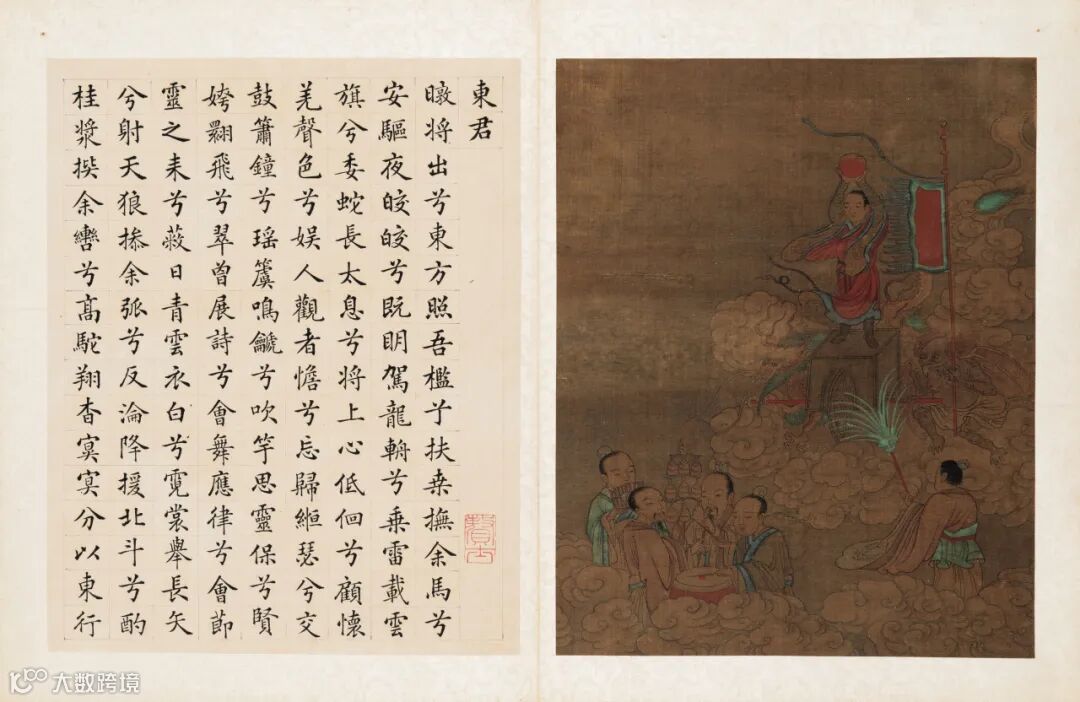 東君
暾将出兮東方照吾檻兮扶桒撫余馬兮
安驅夜皎皎兮既明駕龍輈兮乗雷載雲
旗兮委蛇長太息兮将上心低佪兮顧懷
羌聲色兮娱人觀者憺兮忘歸縆瑟兮交
鼓簫鐘兮瑶簴鳴䶵兮吹竽思靈保兮賢
姱翾飛兮翠曾展詩兮會舞應律兮會節
靈之来兮蔽日青雲衣白兮霓裳舉長矢
兮射天狼操余弧兮反淪降援北斗兮酌
桂漿撰余轡兮髙駝翔杳冥冥兮以東行
大数跨境